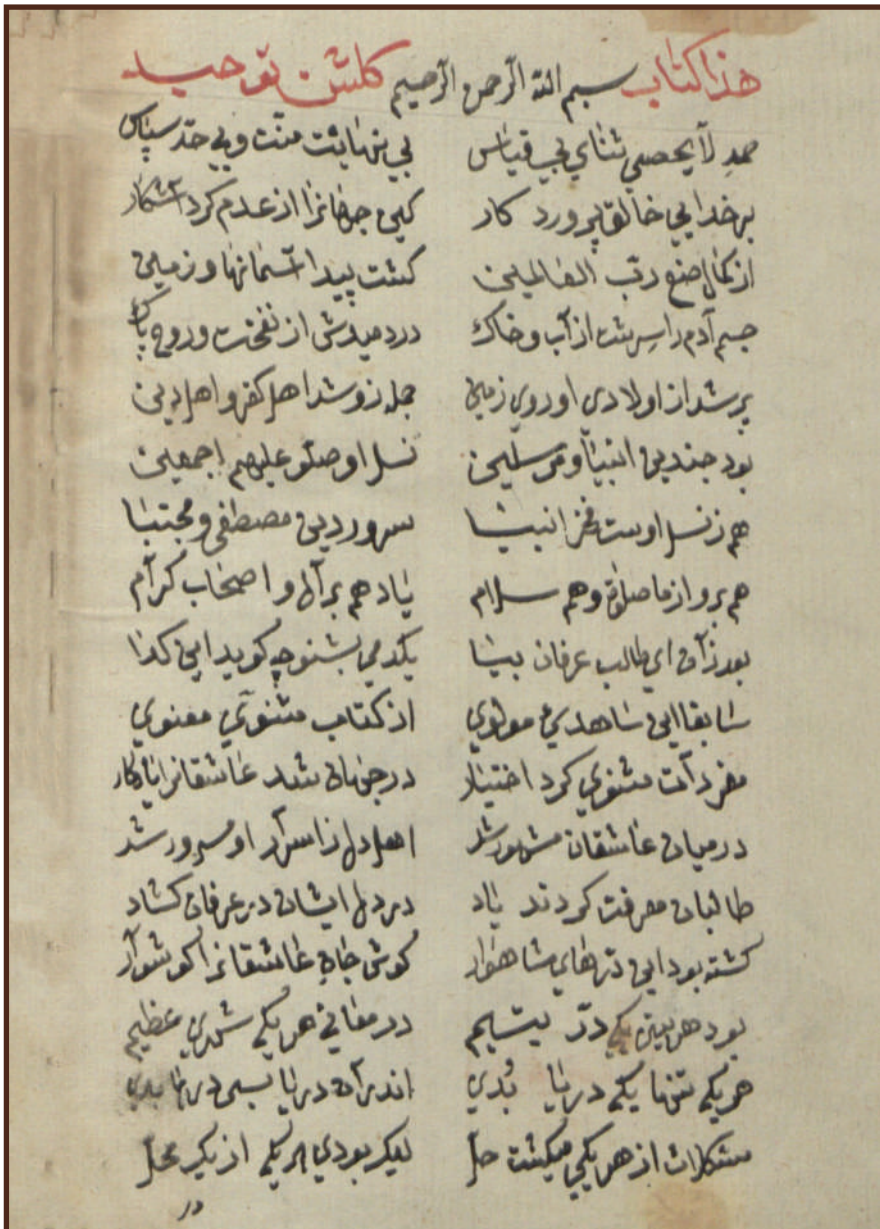 هذا كتاب بسم الله الرحمن الرحيم كلشن توحيد
حمدِ لا يحصي ثناي بي قياس بي نهايت منّت و بي حدّ سپاس
بر خدايي خالق پرورد كار كيي جهانرا از عدم كرد آشكار
از كمال صنع ربّ العالمين كشت پيدا آسمانها و زمين
جسم آدم را سرشت از آب و خاك دردميدش از نفخت و روح پاك
پر شد از اولادي او روي زمين جمله زو شد اهل كفر و اهل دين
بود چندين انبيا و مرسلين نسل او صلّو عليهم اجمعين
هم ز نسل اوست فخر انبيا سرور دين مصطفى و مجتبا
هم برو از ما صلوة و هم سلام باد هم بر آل و اصحاب كرام
بعد زآن اي طالب عرفان بيا يكدمي بشنو چه كويد اين كدا
سابقا اين شاهدي مولوي از كتاب مثنويّ معنوي
مفردات مثنوي كرد اختيار در جهان شد عاشقانرا يادكار
در ميان عاشقان مشهور شد اهل دل ز اسرار او مسرور شد
طالبان معرفت كردند ياد در دل ايشان در عرفان كشاد
كشته بود اين درّهاي شاهوار كوش جان عاشقانرا كوشوار
بود هر بيتي يكي درّ يتيم در معاني هر يكي شهري عظيم
هر يكي تنها يكي دريا بُدي اندر آن دريا بسي درها بدي
مشكلات از هر يكي ميكشت حل ليك بودي هر يكي از يك محل
در